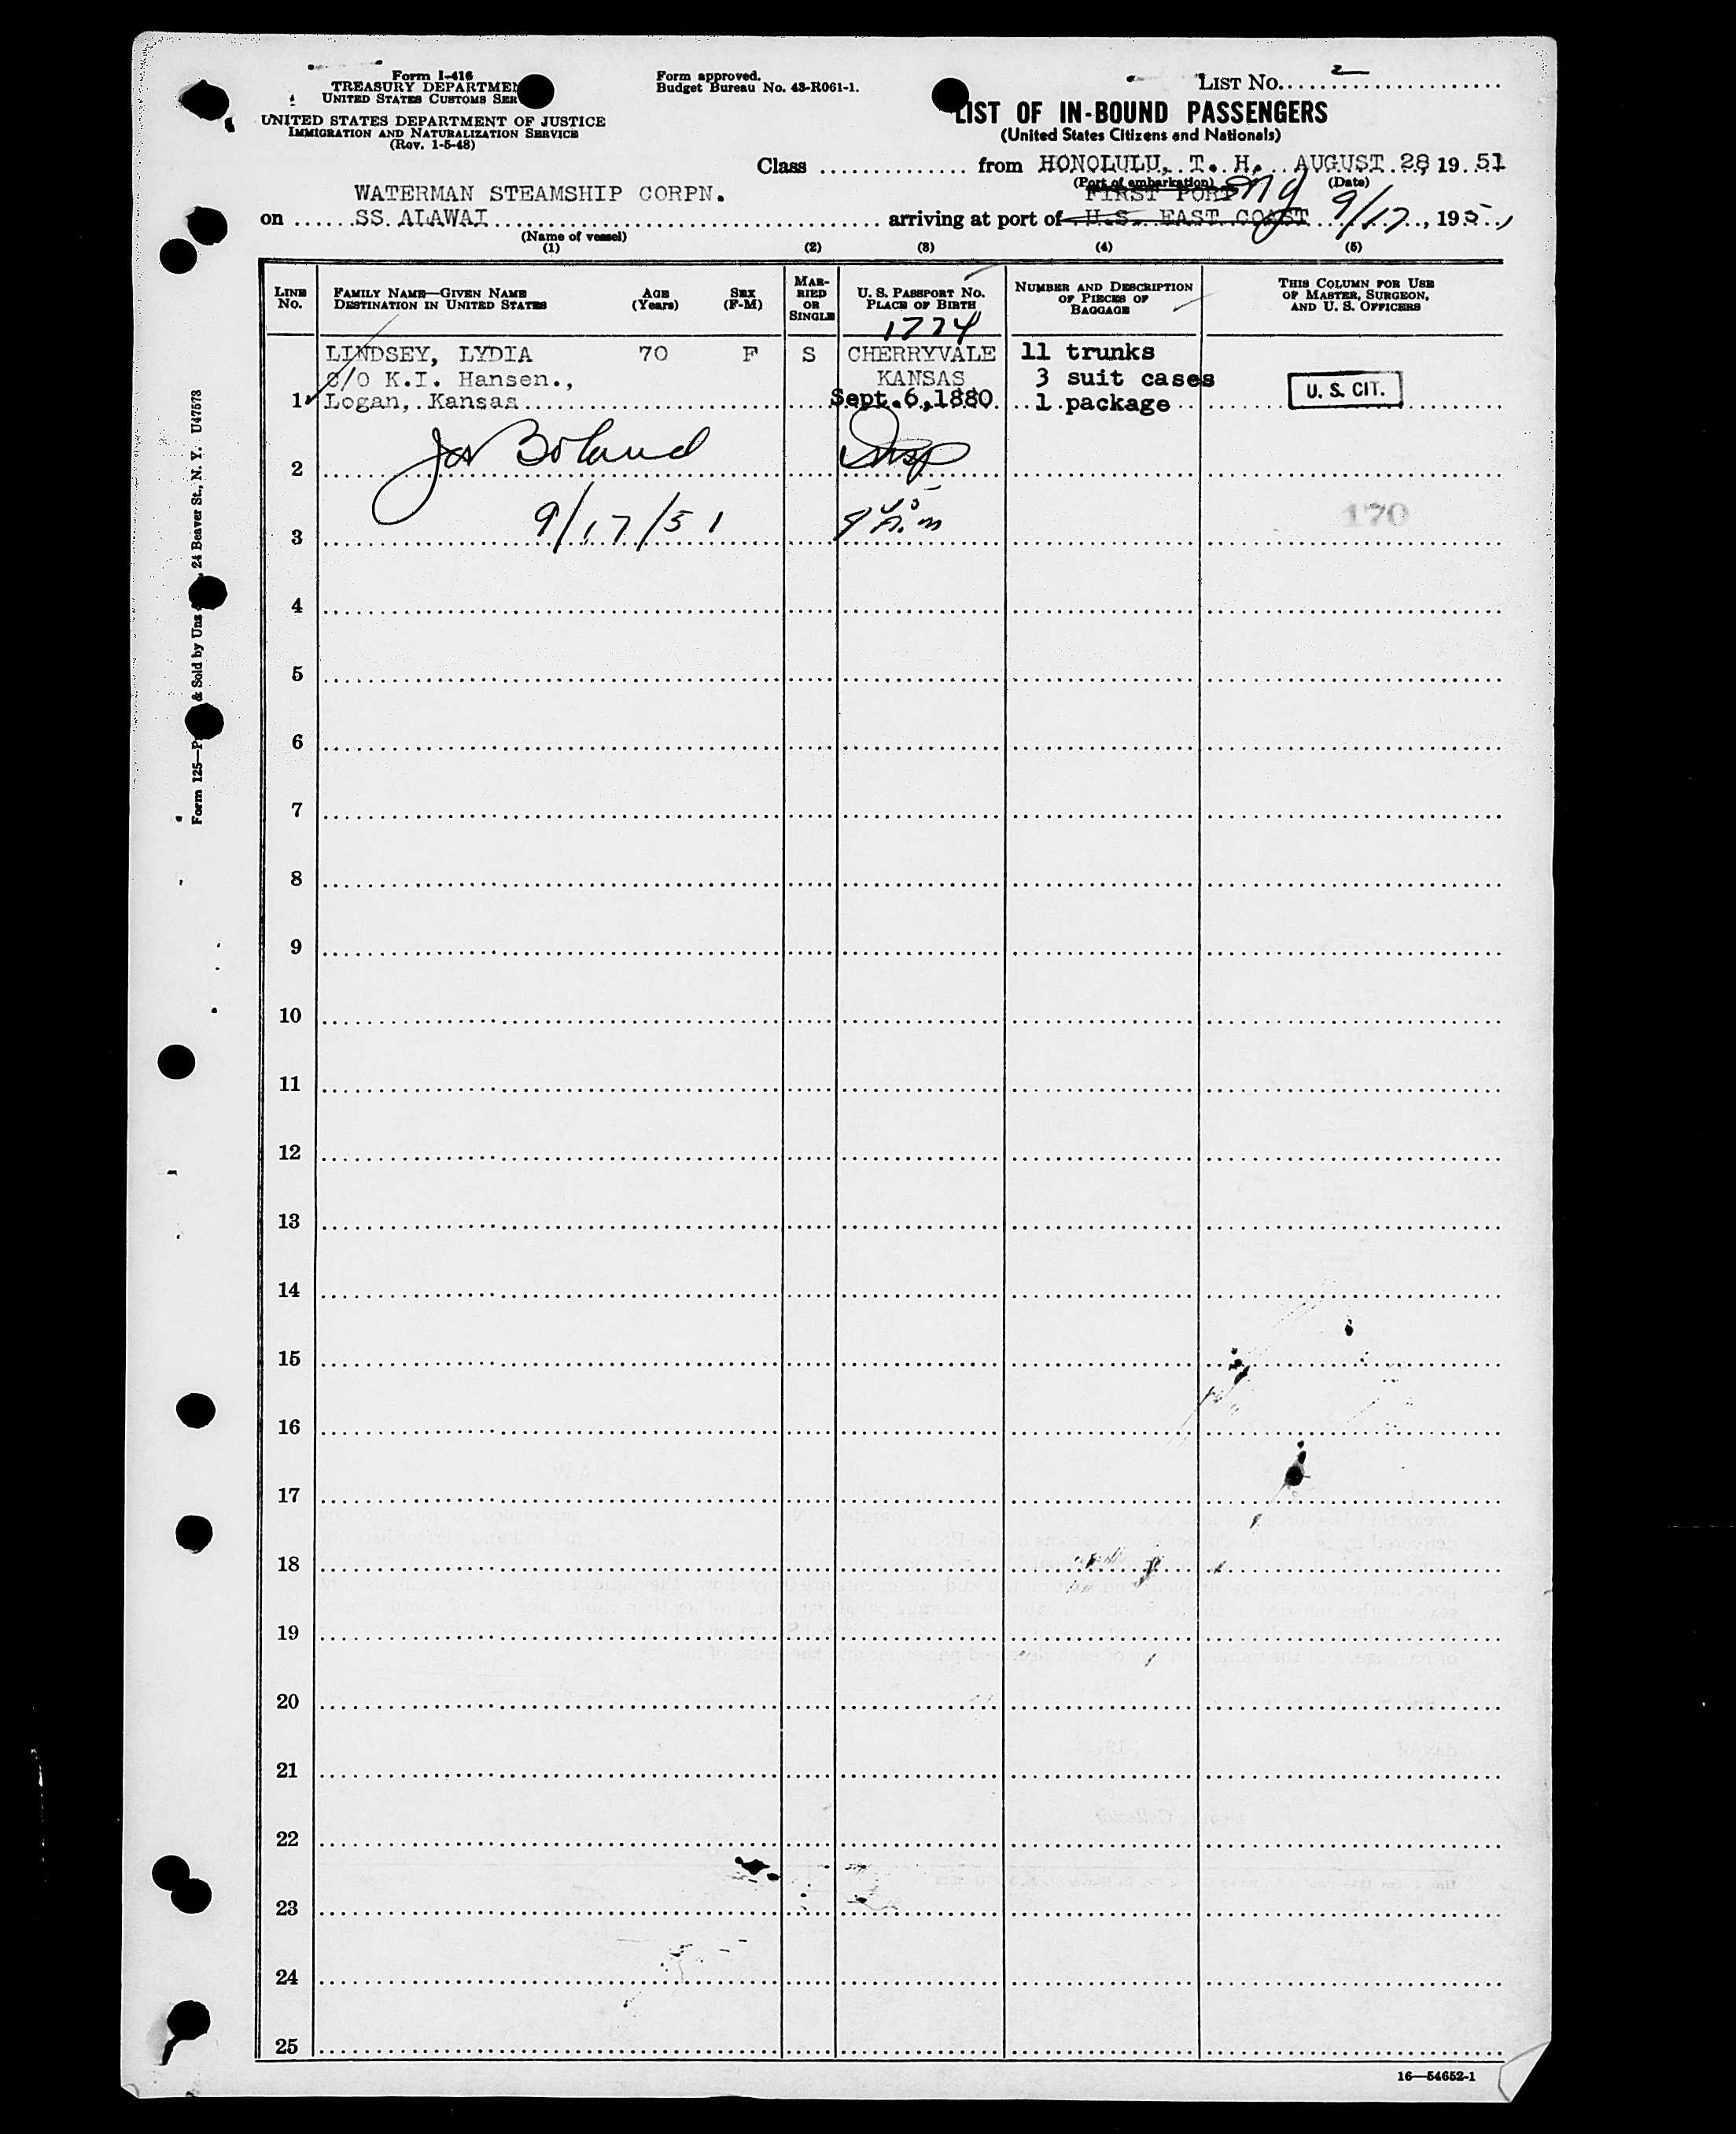 Form I-416
TREASURY DEPARTMEN
UNITED STATES CUSTOMS SER
UNITED STATES DEPARTMENT OF JUSTICE
IMMIGRATION AND NATURALIZATION SERVICE
(Rev. 1-5-48)
Form approved.
Budget Bureau No. 43-R061-1.
LIST No. 2
LIST OF IN-BOUND PASSENGERS
(United States Citizens and Nationals)
Class from HONOLULU, T. H. AUGUST 28, 19 51
(Port of embarkation) (Date)
WATERMAN STEAMSHIP CORPN. FIRST PORT NY
on SS ALAWAI arriving at port of U.S. EAST COAST 9/17, 1951
(Name of vessel)
(1) (2) (3) (4) (5)
LINE No.
FAMILY NAME—GIVEN NAME
DESTINATION IN UNITED STATES
AGE (Years)
SEX (F-M)
MARRIED OR SINGLE
U. S. PASSPORT NO.
PLACE OF BIRTH
1774
NUMBER AND DESCRIPTION OF PIECES OF BAGGAGE
THIS COLUMN FOR USE OF MASTER, SURGEON, AND U. S. OFFICERS
LINDSEY, LYDIA 70 F S CHERRYVALE 11 trunks
C/O K.I. Hansen., KANSAS 3 suit cases
1 Logan, Kansas Sept.6,1880 1 package U. S. CIT.
2 Jos Boland Insp
3 9/17/51 170
4
5
6
7
8
9
10
11
12
13
14
15
16
17
18
19
20
21
22
23
24
25
16—54652-1
Form 125—P & Sold by Unz , 24 Beaver St., N. Y. U47573